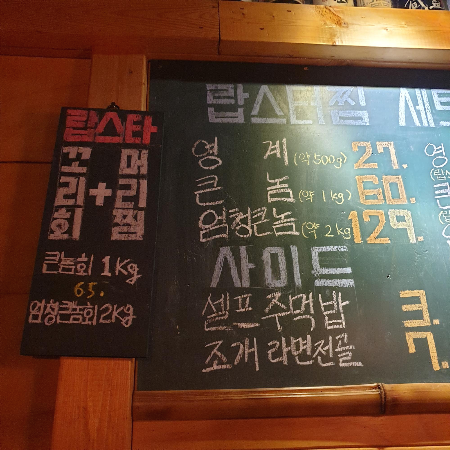 랍스타
꼬리회 + 머리찜
큰놈회 1kg
65.
엄청큰놈회 2kg
랍스터찜 세트
영계 (약 500g) 27.
큰놈 (약 1kg) 60.
엄청큰놈 (약 2kg) 129.
사이드
셀프주먹밥 3.
조개라면전골 7.